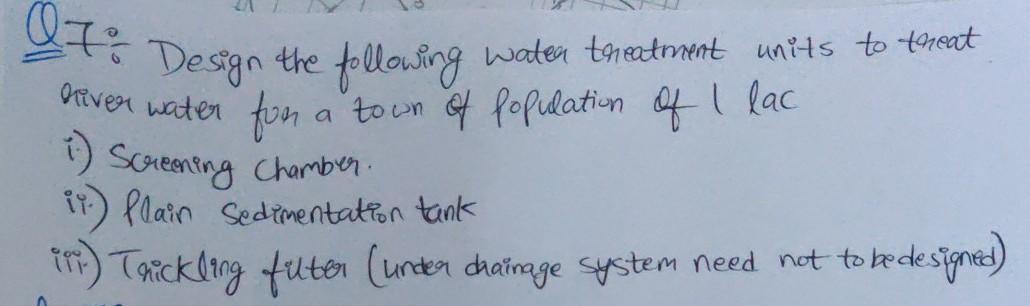 Q7: Design the following water treatment units to treat
river water for a town of population of 1 lac
i) Screening Chamber.
ii) Plain Sedimentation tank
iii) Trickling filter (under drainage system need not to be designed)